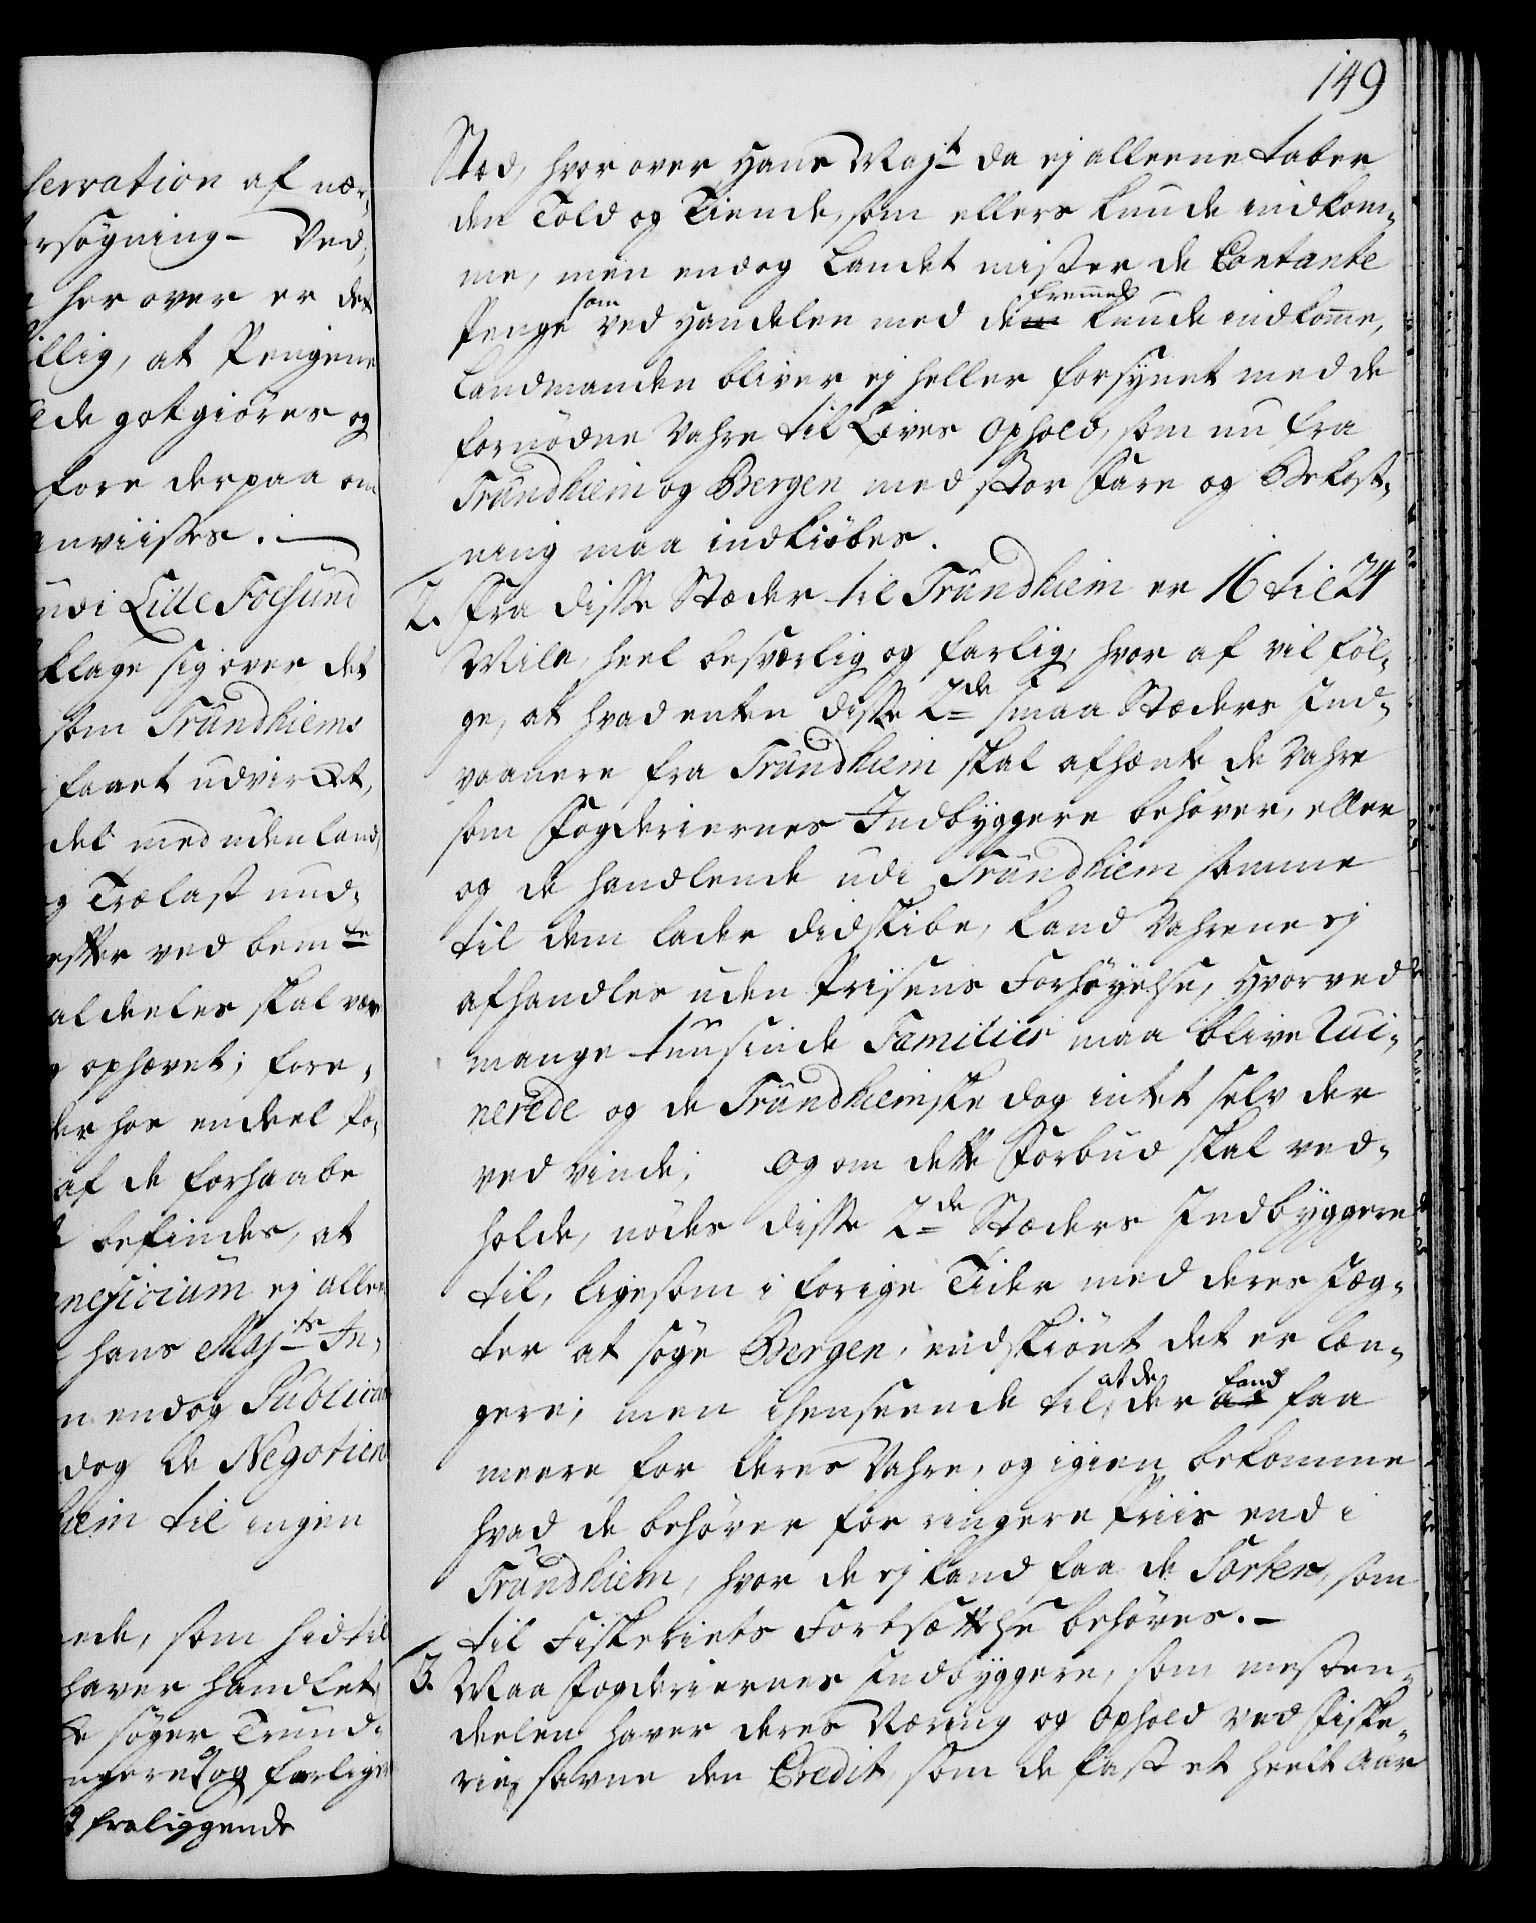 149
servation af nær-
rsøgning - Ved
her over er det
illig, at Pengene
de gotgiöres og
fore derpaa om
anviises. —
udi Lille Foesund
klage sig over det
som Trundhiems
faaet udvirket,
det med udenland
g Trælast und-
efter ved bemte
aldeeles skal vær
ophævet; fore-
der hos endeel Po-
af de forhaabe
befindes, at
neficium ej allee
hans Majts In-
n endog Publicum
dog de Negotien
hiem til ingen
ede, som hidtil
haver handlet
søger Trund-
ngere og farliger
fraliggende
Sted, hvor over Hans Majt da ej alleene taber
den Told og Tiende, som ellers kunde indkom-
me, men endog Landet mister de Contante
Penge som ved Handelen med de fremmede kunde indkomme,
Landmanden bliver ej heller forsynet med de
fornødne Vahre til Livers Ophold, som nu fra
Trundhiem og Bergen med stor Fare og Bekost-
ning maa indkiöbes.
2. Fra disse Stæder til Trundhiem er 16 til 24
Mile, heel besværlig og farlig, hvor af vil föl-
ge, at hvad enten disse 2de smaa Stæders Ind-
vaanere fra Trundhiem skal afhænte de Vahre
som Fogderiernes Indbyggere behöver, eller
og de handlende udi Trundhiem samme
til dem lader didskibe, kand Vahrene ej
afhandles uden Prisens Forhöyelse, hvorved
mange tuusinde Familier maa blive rui-
nerede og de Trundhiemske dog intet selv der
ved vinde; Og om dette Forbud skal ved-
holde, nödes disse 2de Stæders Indbyggere
til, ligesom i forige Tider med deres Jæg-
ter at söge Bergen, endskiönt det er læn-
gere; men ihenseende til, at de der kand faa
meere for deres Vahre, og igien bekomme
hvad de behöver for ringere Priis end i
Trundhiem, hvor de ej kand faa de Sorter, som
til Fiskeriets Fortsættelse behöves. -
3. Maa Fogderiernes Indbyggere, som mesten-
deelen haver deres Næring og Ophold ved Fiske-
rie, savne den Credit, som de fast et heelt Aar